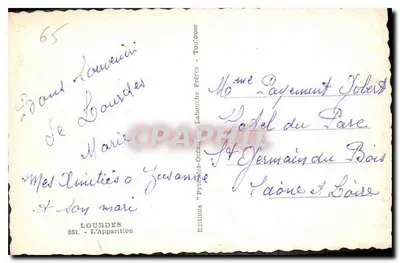 65
Bons Souvenirs
de Lourdes
Marie
Mes Amitiés à Suzanne
et son mari
LOURDES
861. - L'Apparition
Editions "Pyrénées-Océan" Labouche Frères - Toulouse
CPAPHIL
Mme Payement Jobert
Hotel du Parc
St Germain du Bois
Saône et Loire